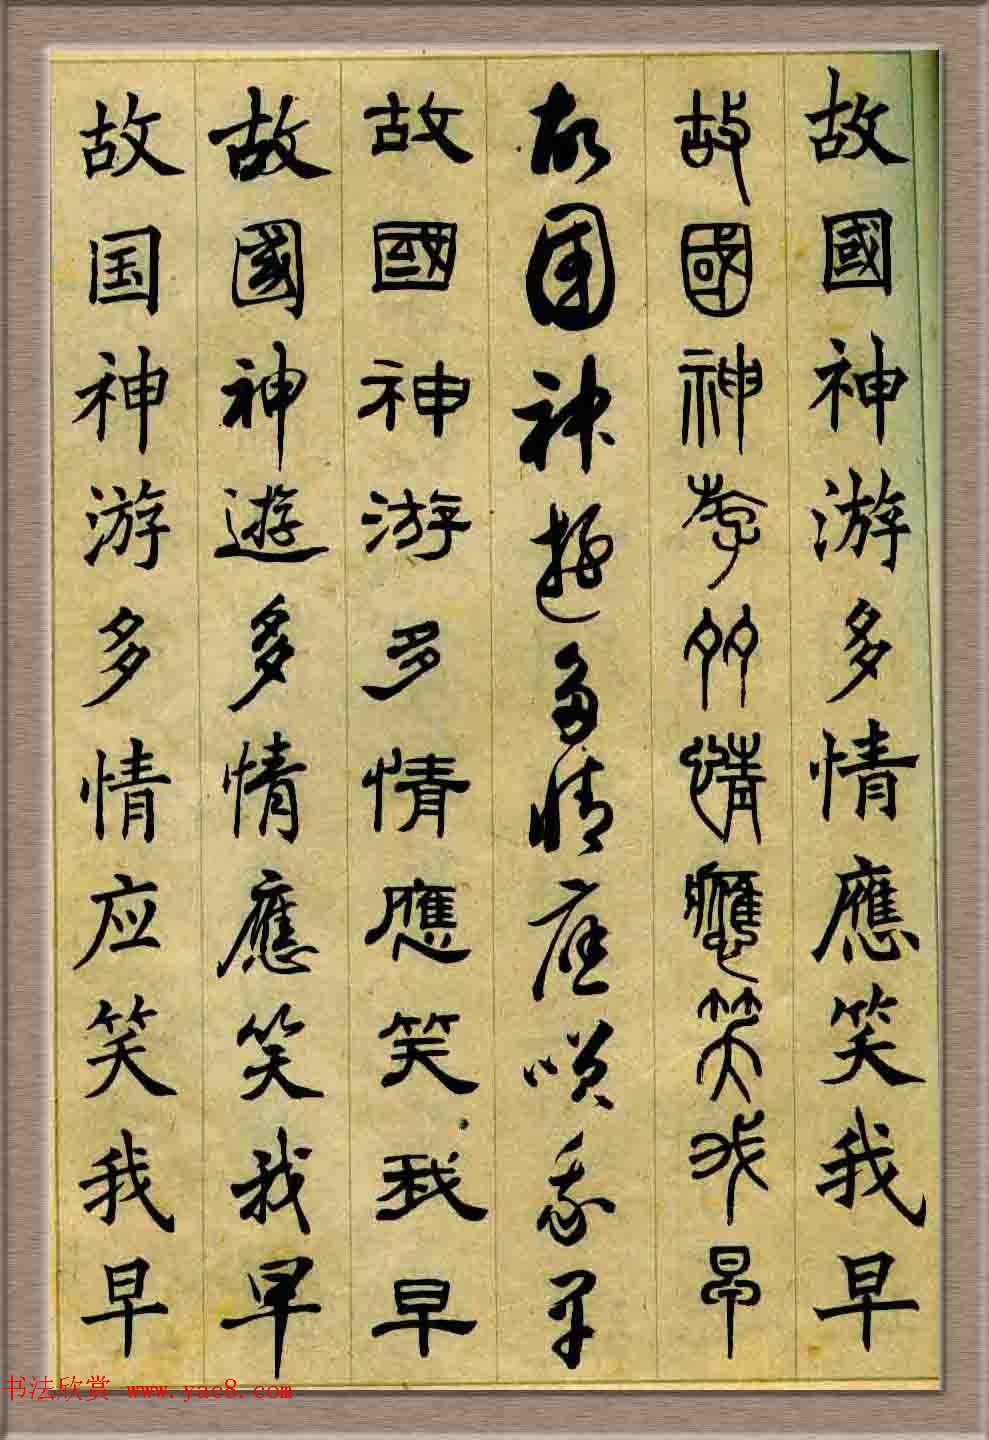 故國神游多情應笑我早
故國神游多情應笑我早
故國神遊多情應笑我早
故國神游多情應笑我早
故國神遊多情應笑我早
故国神游多情应笑我早
书法欣赏 www.yac8.com